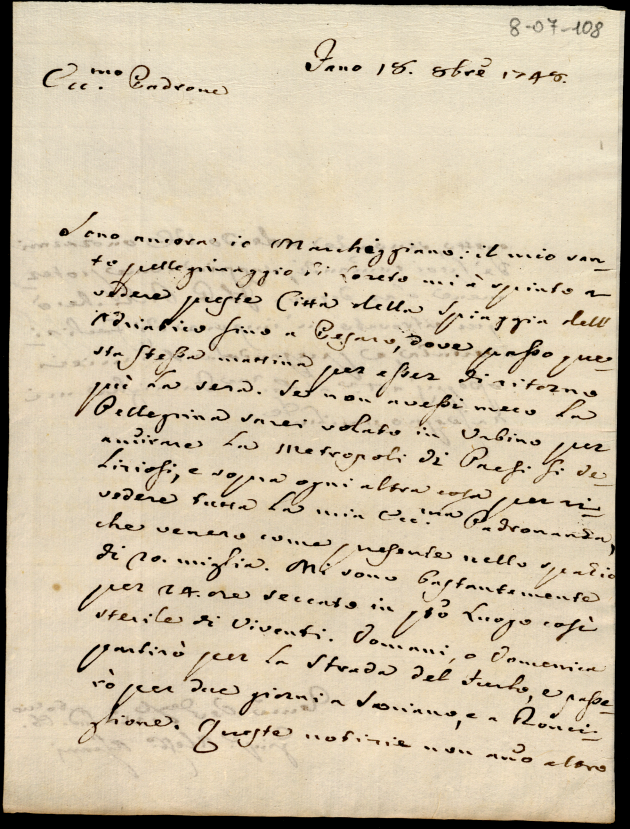 8-07-108
Fano 18. 8bre 1748.
Ecc.mo Padrone
Sono ancora io Marcheggiano: il mio san-
to pellegrinaggio di Loreto mi à spinto a
vedere queste Città della Spiaggia dell'
Adriatico sino a Pesaro, dove passo que-
sta stessa mattina per esser di ritorno
quì la sera. Se non avessi meco la
Pellegrina sarei volato in Urbino per
amirare la Metropoli di Paesi si de-
liziosi, e sopra ogni altra cosa per ri-
vedere tutta la mia Ecc.ma Padronanza,
che venero come presente nello spatio
di 20. miglia. Mi sono bastantemente
per 24. ore seccato in qto Luogo così
sterile di Viventi. Domani, o Domenica
partirò per la Strada del Furlo, e passe-
rò per due giorni a Soriano, e a Ronci-
glione. Queste notizie non ano altro